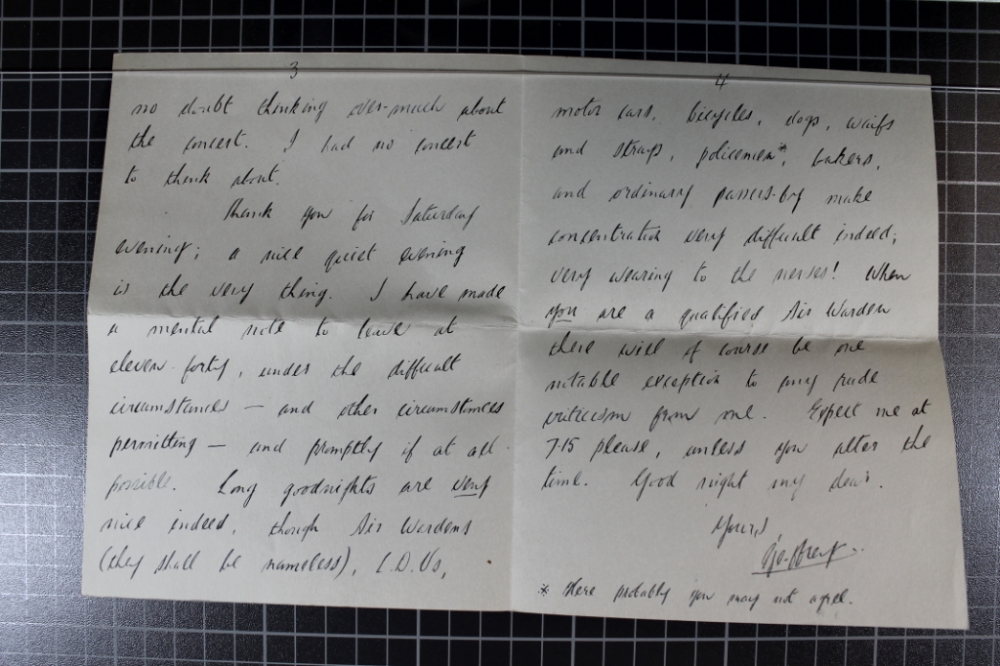 3
no doubt thinking over-much about
the concert. I had no concert
to think about.
Thank you for Saturday
evening; a nice quiet evening
is the very thing. I have made
a mental note to leave at
eleven-forty, under the difficult
circumstances — and other circumstances
permitting — and promptly if at all
possible. Long goodnights are very
nice indeed, though Air Wardens
(they shall be nameless), L.D.Vs,
4
motor cars, bicycles, dogs, waifs
and strays, policemen*, bakers,
and ordinary passers-by make
concentration very difficult indeed;
very wearing to the nerves! When
you are a qualified Air Warden
there will of course be one
notable exception to any rude
criticism from me. Expect me at
7.15 please, unless you alter the
time. Good night my dear.
Yours,
Geoffrey.
* Here probably you may not agree.